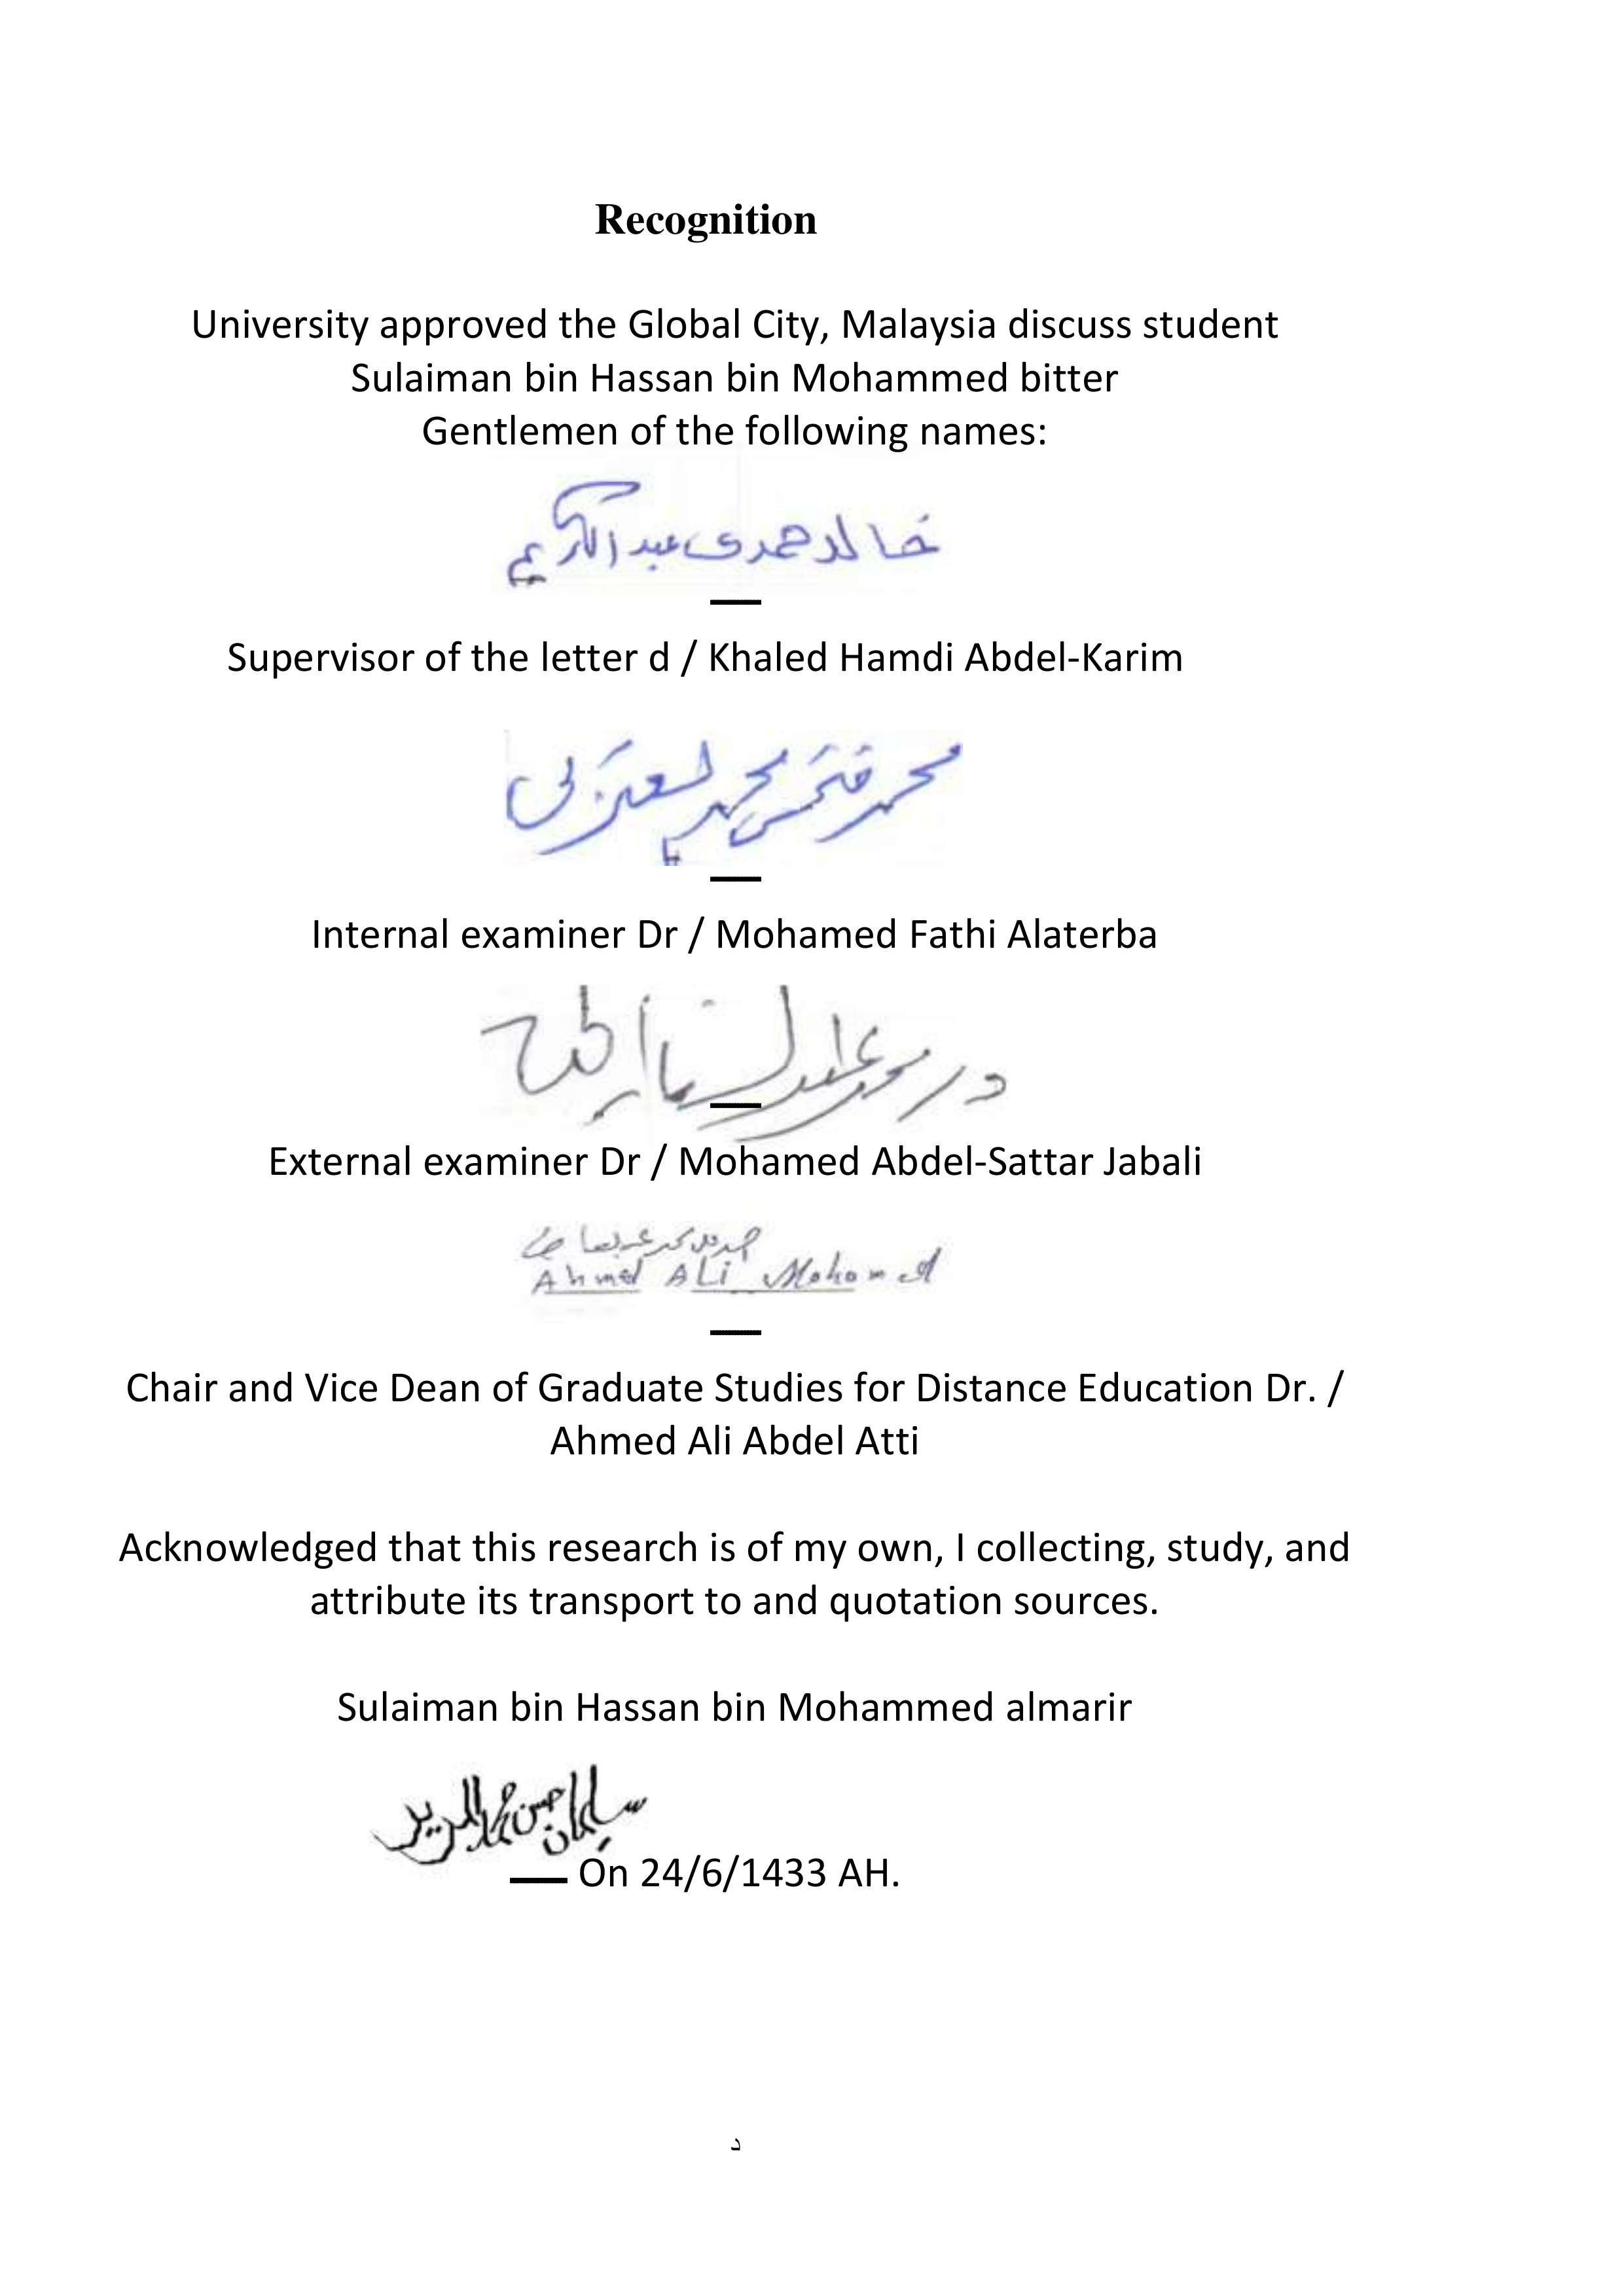 Recognition
University approved the Global City, Malaysia discuss student
Sulaiman bin Hassan bin Mohammed bitter
Gentlemen of the following names:
خالد حمدى عبد الكريم
Supervisor of the letter d / Khaled Hamdi Abdel-Karim
محمد فتحى محمد العتربى
Internal examiner Dr / Mohamed Fathi Alaterba
د. محمد عبد الستار
External examiner Dr / Mohamed Abdel-Sattar Jabali
Ahmed ALi Mohamed
Chair and Vice Dean of Graduate Studies for Distance Education Dr. /
Ahmed Ali Abdel Atti
Acknowledged that this research is of my own, I collecting, study, and
attribute its transport to and quotation sources.
Sulaiman bin Hassan bin Mohammed almarir
سليمان حسن محمد المرير
On 24/6/1433 AH.
د